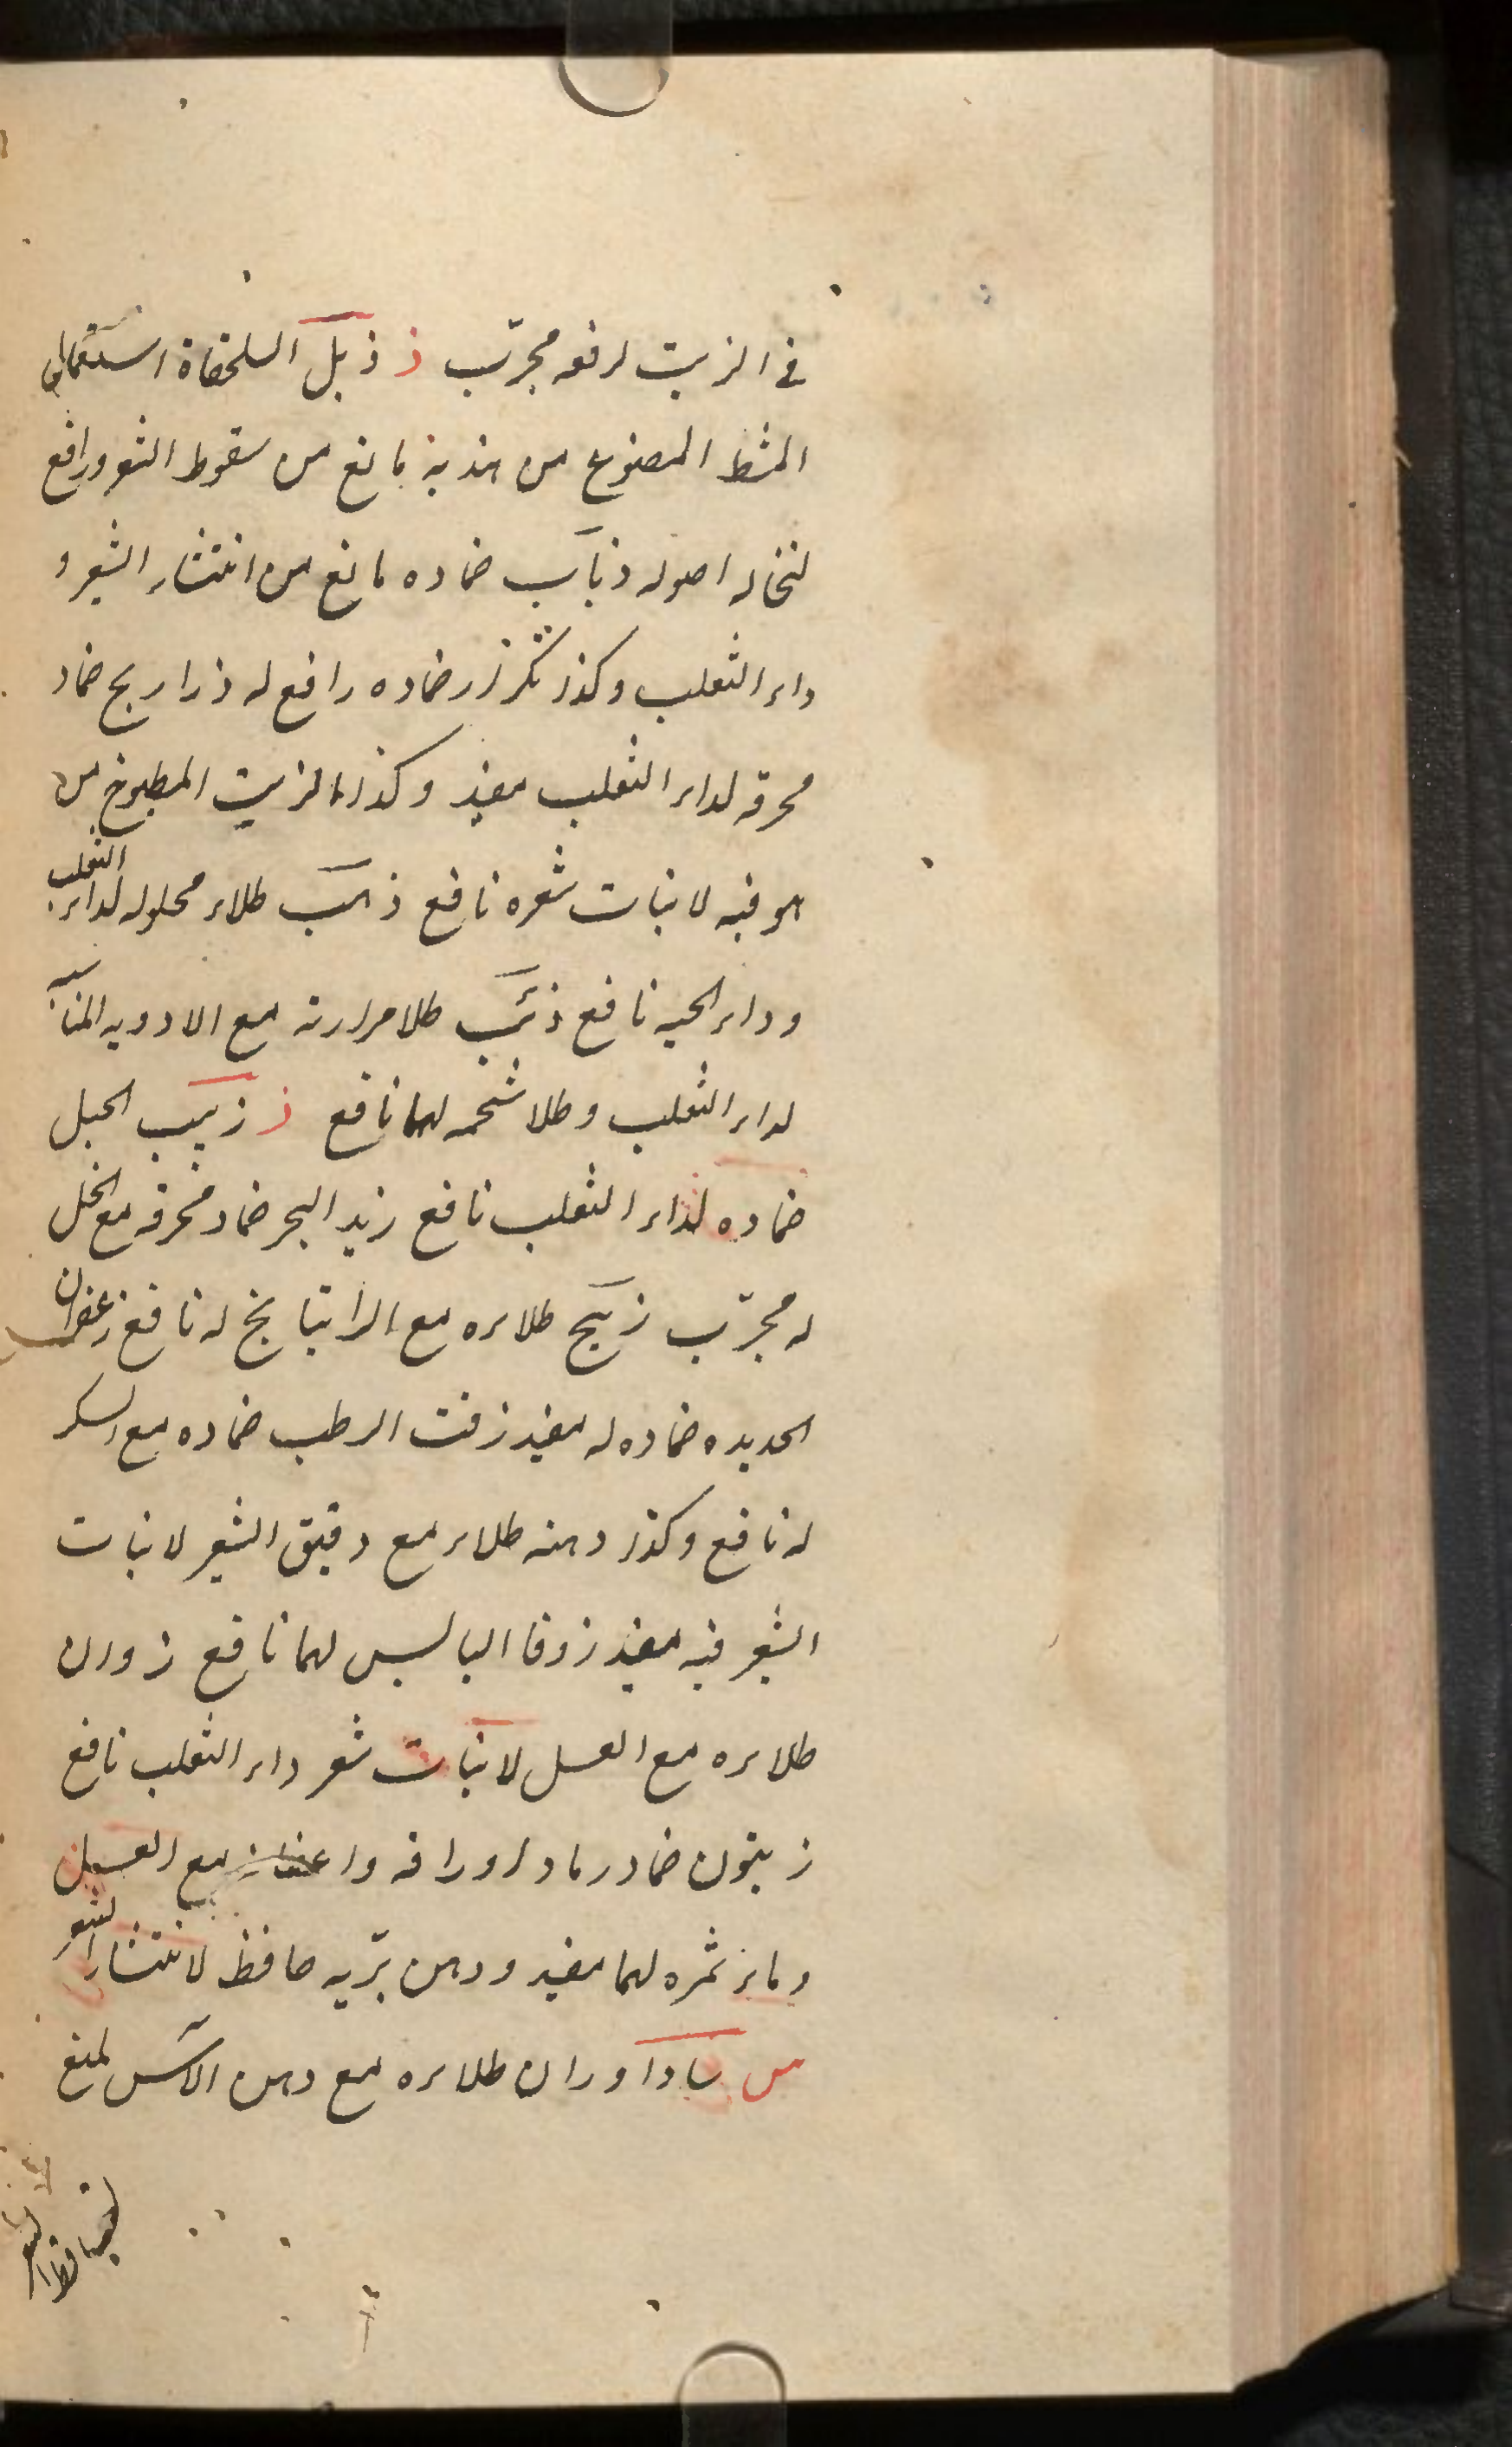 في الزيت لرفعه مجرّب ذ ذبل السلحفاة استعمال
المشط المصنوع من هذ به مانع من سقوط الشعر ورافع
لنخاله اصوله ذباب ضماده مانع من انتثار الشعر و
داء الثعلب وكذا ضماده رافع له ذراريح ضماد
محرقه لداء الثعلب مفيد وكذا الزيت المطبوخ من
هو فيه لانبات شعره نافع ذهب طلاء محلوله لداء الثعلب
وداء الحيه نافع ذئب طلا مرارته مع الادويه المناسبه
لداء الثعلب وطلا شحمه لهما نافع ذ زبيب الجبل
ضماده لداء الثعلب نافع زبد البحر ضماد محرقه مع الخل
له مجرّب طلاءه مع الراتيانج له نافع زعفران
الحديده ضماده له مفيد زفت الرطب ضماده مع السكر
له نافع وكذا دهنه طلاء مع دقيق الشعير لانبات
الشعر فيه مفيد زوفا اليابس لهما نافع زوان
طلاءه مع العسل لانبات شعر داء الثعلب نافع
زيتون ضماد رماد اوراقه مع العسل
وماء ثمره لهما مفيد ودهن برّيه حافظ لانتثار الشعر
س ساداوران طلاءه مع دهن الآس لمنع